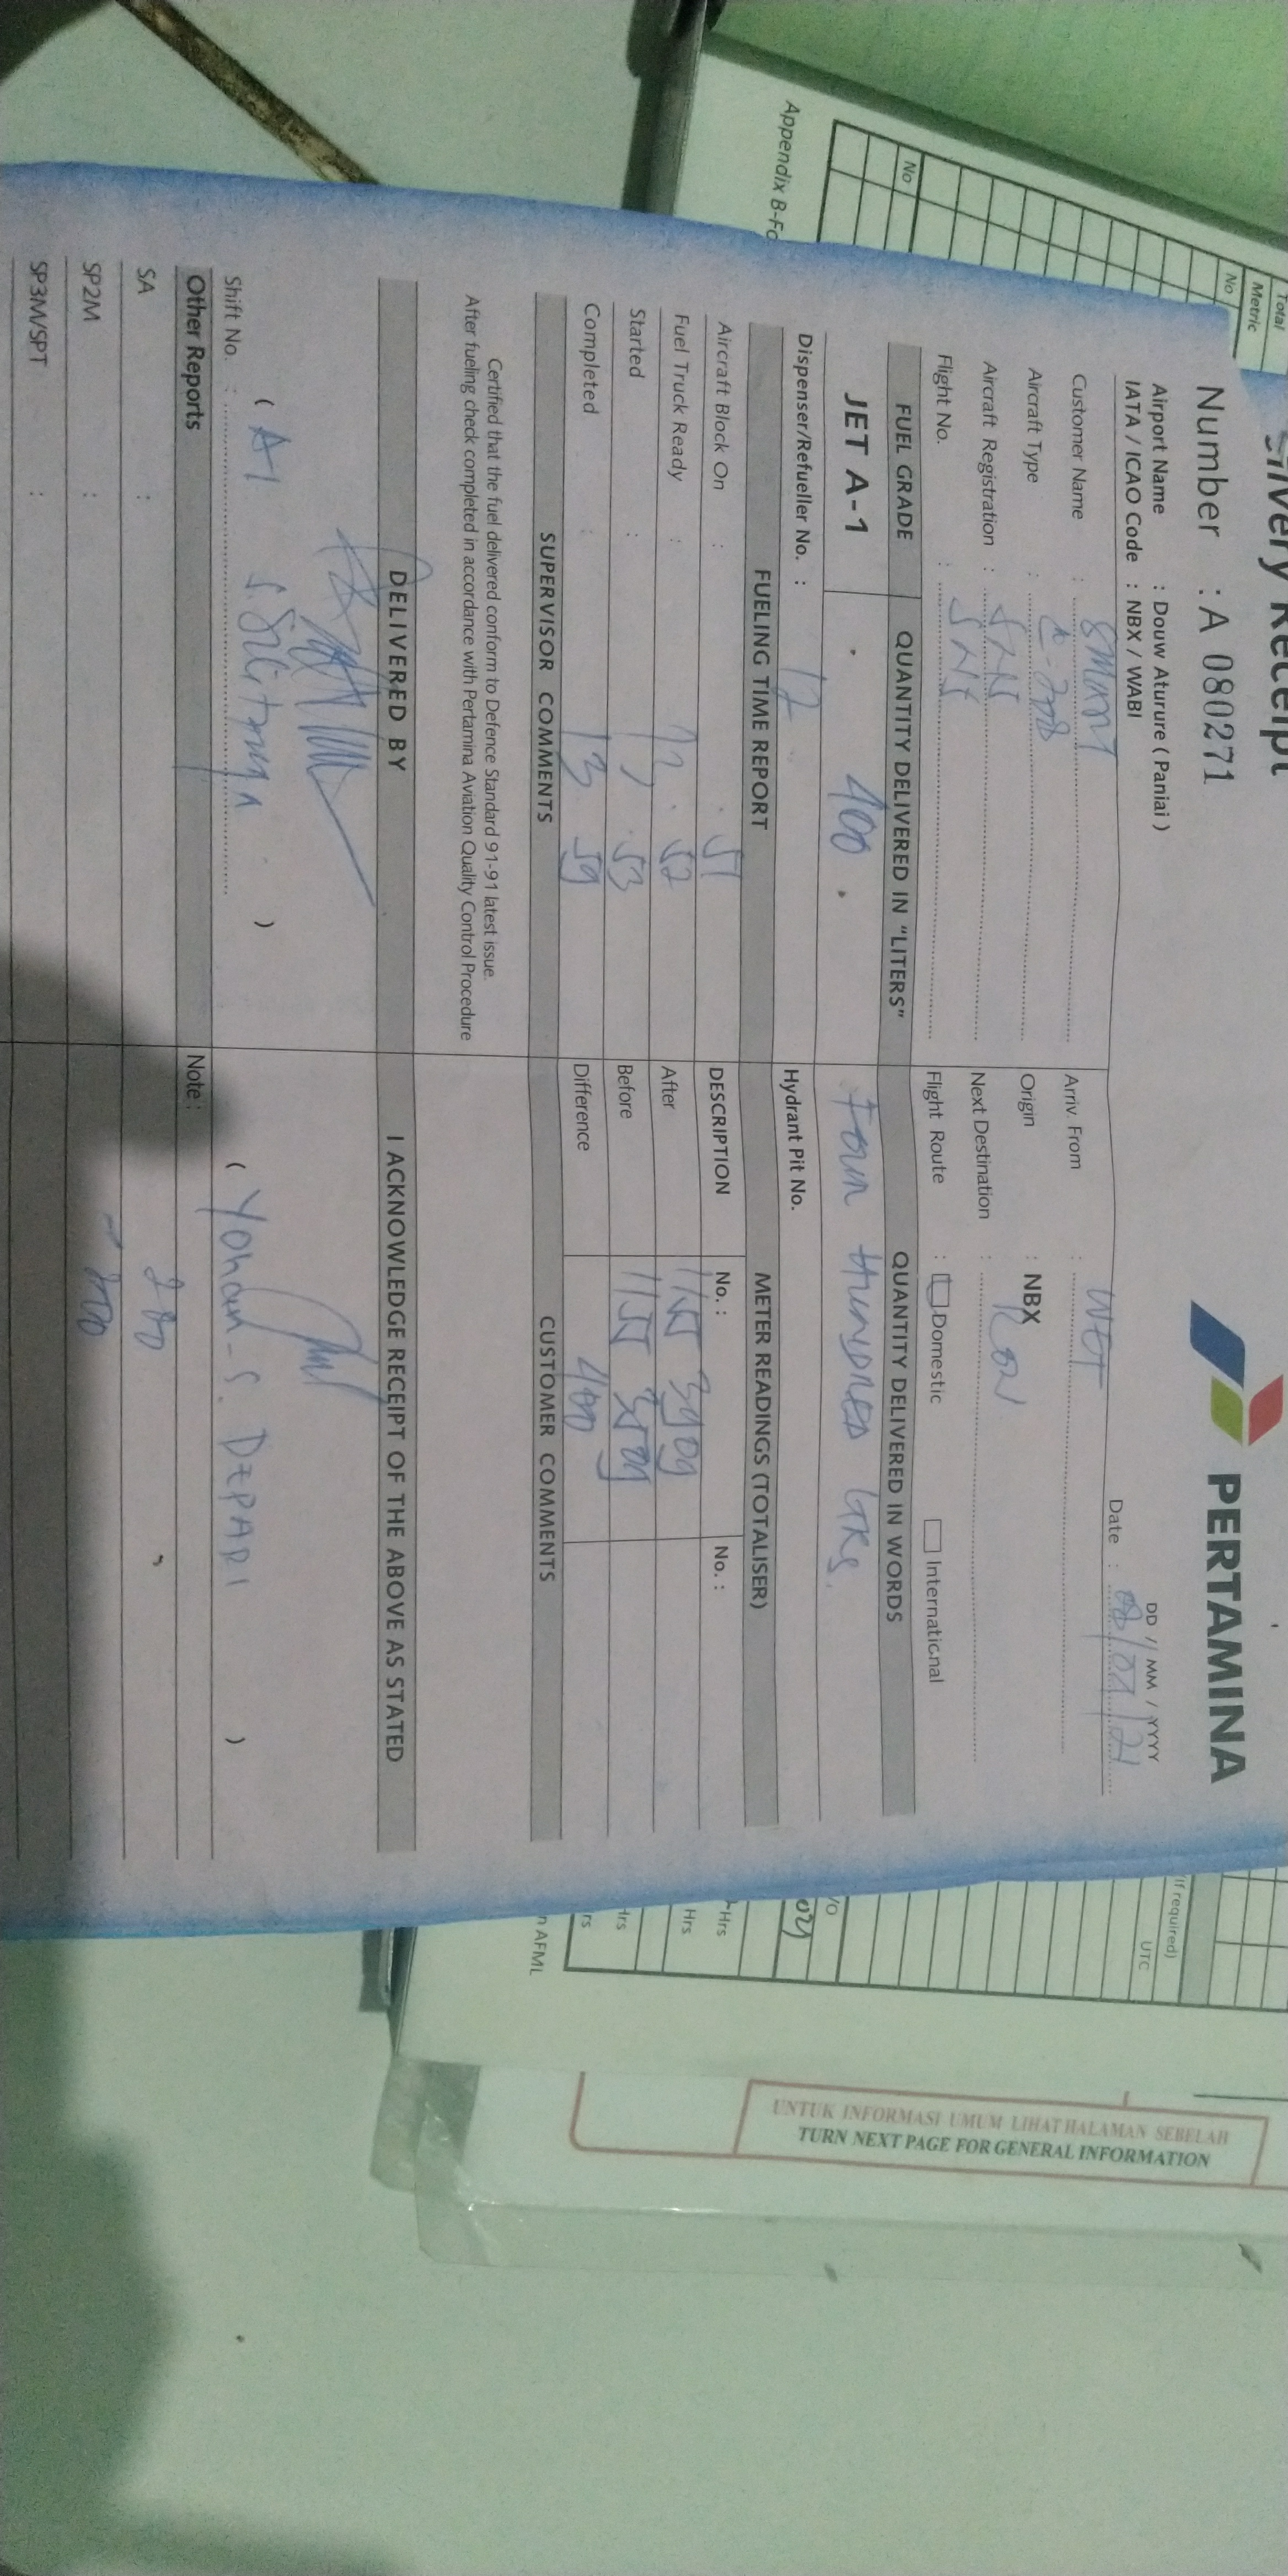 Delivery Receipt
PERTAMINA
Number : A 080271
DD / MM / YYYY
Airport Name : Douw Aturure ( Paniai )
IATA / ICAO Code : NBX / WABI
Date :
Customer Name : SMART
Arriv. From :
Aircraft Type :
Origin : NBX
Aircraft Registration : SNS
Next Destination :
Flight No. : SNS
Flight Route : Domestic International
FUEL GRADE
QUANTITY DELIVERED IN "LITERS"
QUANTITY DELIVERED IN WORDS
JET A-1
400
Four HUNDRED LTRS.
Dispenser/Refueller No. : 12
Hydrant Pit No.
FUELING TIME REPORT
METER READINGS (TOTALISER)
Aircraft Block On : . 51
DESCRIPTION No. : No. :
Fuel Truck Ready : . 52
After 1155 3909
Started : . 53
Before 1155 3509
Completed : 13 59
Difference 400
SUPERVISOR COMMENTS
CUSTOMER COMMENTS
Certified that the fuel delivered conform to Defence Standard 91-91 latest issue.
After fueling check completed in accordance with Pertamina Aviation Quality Control Procedure
DELIVERED BY
I ACKNOWLEDGE RECEIPT OF THE ABOVE AS STATED
( )
( Yohan - S. )
Shift No. :
Other Reports
Note :
SA :
SP2M :
SP3M/SPT :
Total
Metric
No
No
Appendix B-Fo
(If required)
UTC
Hrs
Hrs
Hrs
rs
n AFML
UNTUK INFORMASI UMUM LIHAT HALAMAN SEBELAH
TURN NEXT PAGE FOR GENERAL INFORMATION